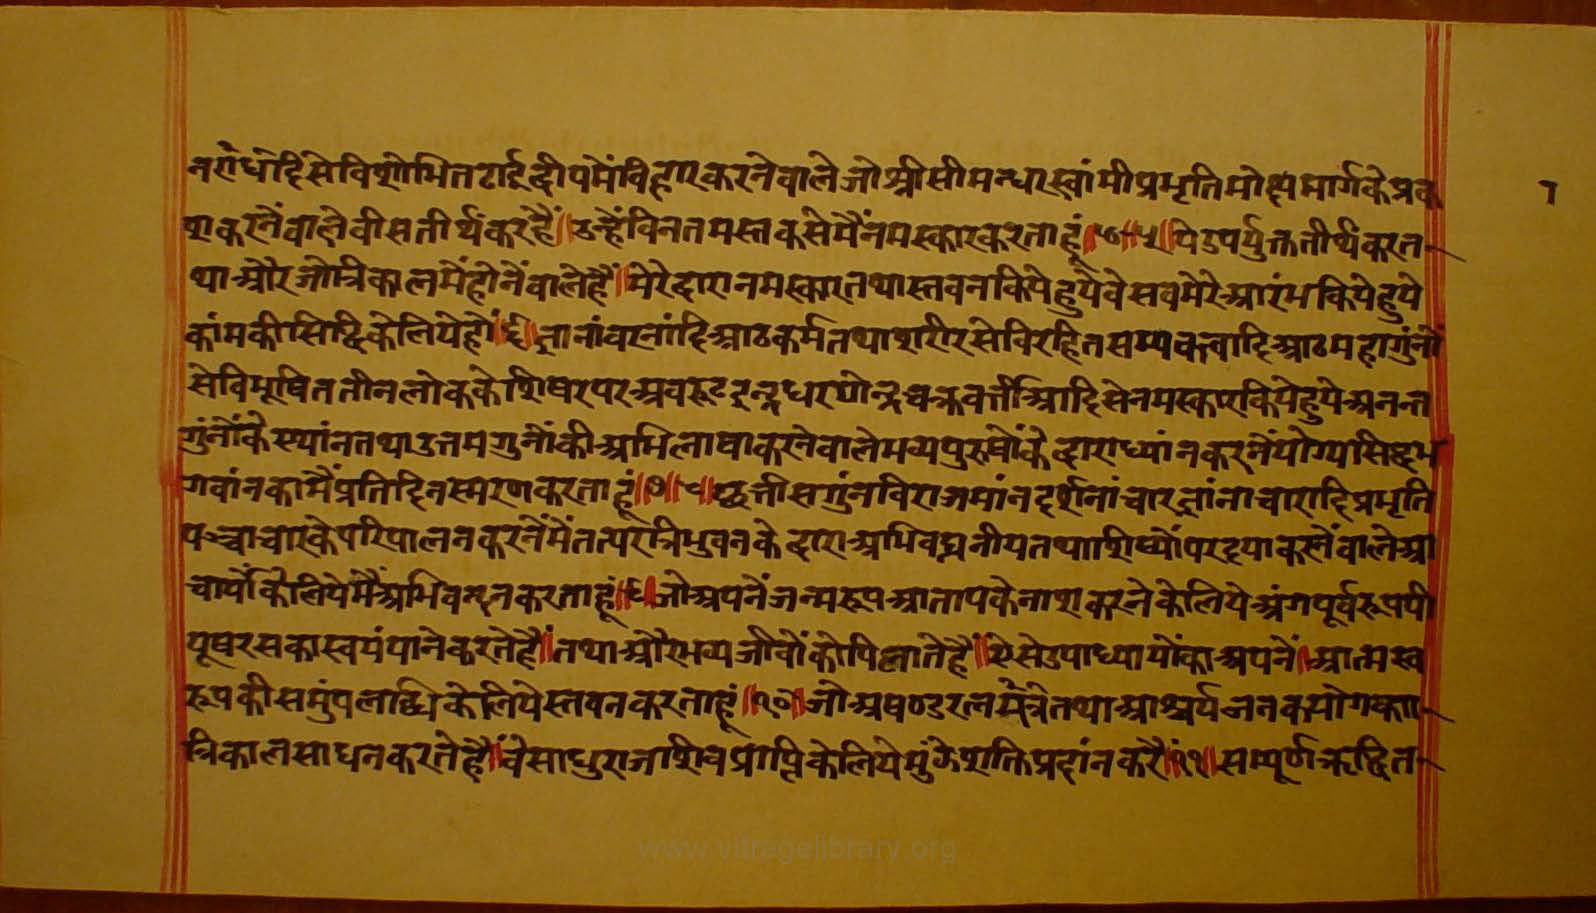 नरौघोदिसेविशोभितढाईद्वीपमेंविहारकरनेवालेजोश्रीसीमन्धरस्वांमीप्रभृतिमोक्षमार्गकेप्रका
शकरनेंवालेवीसतीर्थंकरहैं॥उन्हेंविनतमस्तकसेमैंनमस्कारकरताहूं॥४-५॥येउपर्युक्ततीर्थंकरत-
थाऔरजोत्रिकालमेंहोनेंवालेहैं॥मेरेद्वारानमस्कारतथास्तवनकियेहुयेवेसबमेरेआरंभकियेहुये
कांमकीसिद्धिकेलियेहों॥६॥ज्ञानांवरनांदिआठकर्मतथाशरीरसेविरहितसम्यक्त्वादिआठमहागुंनों
सेविभूषिततीनलोककेशिषरपरअवरूढइन्द्रधरणेन्द्रचक्रवर्त्तीआदिसेनमस्कारकियेहुयेअनन्त
गुंनोंकेस्थांनतथाउत्तमगुनोंकीअभिलाषाकरनेवालेभव्यपुरुषोंकेद्वाराध्यांनकरनेंयोग्यसिद्धभ
गवांनकामैंप्रतिदिनस्मरणकरताहूं॥७-८॥छत्तीसगुंनविराजमांनदर्शनांचारज्ञांनाचारादिप्रभृति
पञ्चाचारकेपरिपालनकरनेंमेंतत्परत्रिभुवनकेद्वाराअभिवन्दनीयतथाशिष्योंपरदयाकरनेंवालेआ
चार्योंकेलियेमैंअभिवन्दनकरताहूं॥९॥जोअपनेंजन्मरूपआतापकेनाशकरनेकेलियेअंगपूर्वरूपपी
यूषरसकास्वयंपानेकरतेहैं॥तथाऔरभव्यजीवोंकोपिलातेहैं॥ऐसेउपाध्यायोंकाअपनें॥आत्मस्व
रूपकीसमुंपलब्धिकेलियेस्तवनकरताहूं॥१०॥जोअषण्डरत्नत्रेतथाआश्चर्यजनकयोगका-
त्रिकालसाधनकरतेहैं॥वेसाधुराजशिवप्राप्तिकेलियेमुंझेशक्तिप्रदांनकरैं॥११॥सम्पूर्णऋद्धित-
१
www.vitragelibrary.org